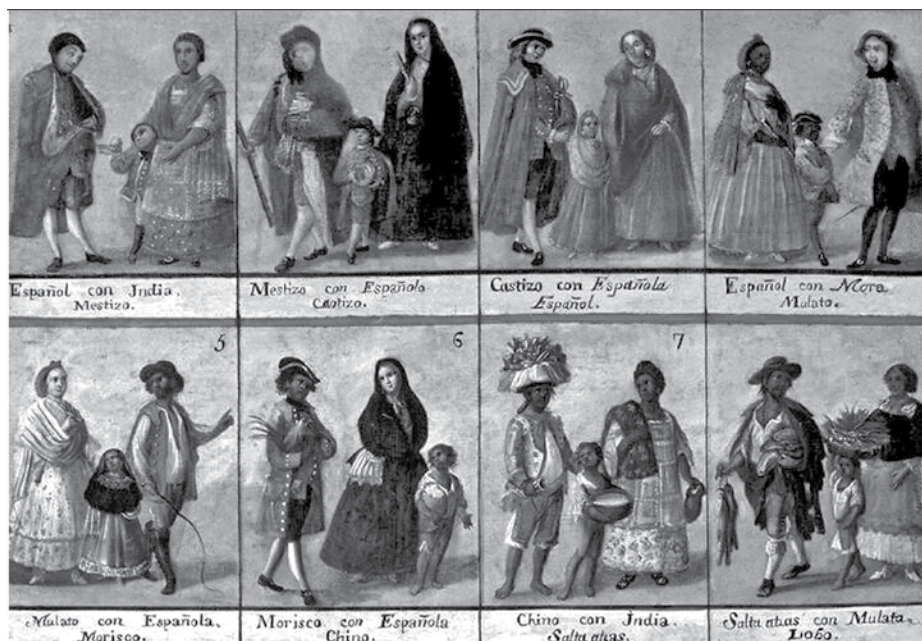 Español con India.
Mestizo.
Mestizo con Española
Castizo.
Castizo con Española
Español.
Español con Mora
Mulato.
5
Mulato con Española.
Morisco.
6
Morisco con Española
Chino.
7
Chino con India.
Salta atras.
Salta atras con Mulata
Lobo.